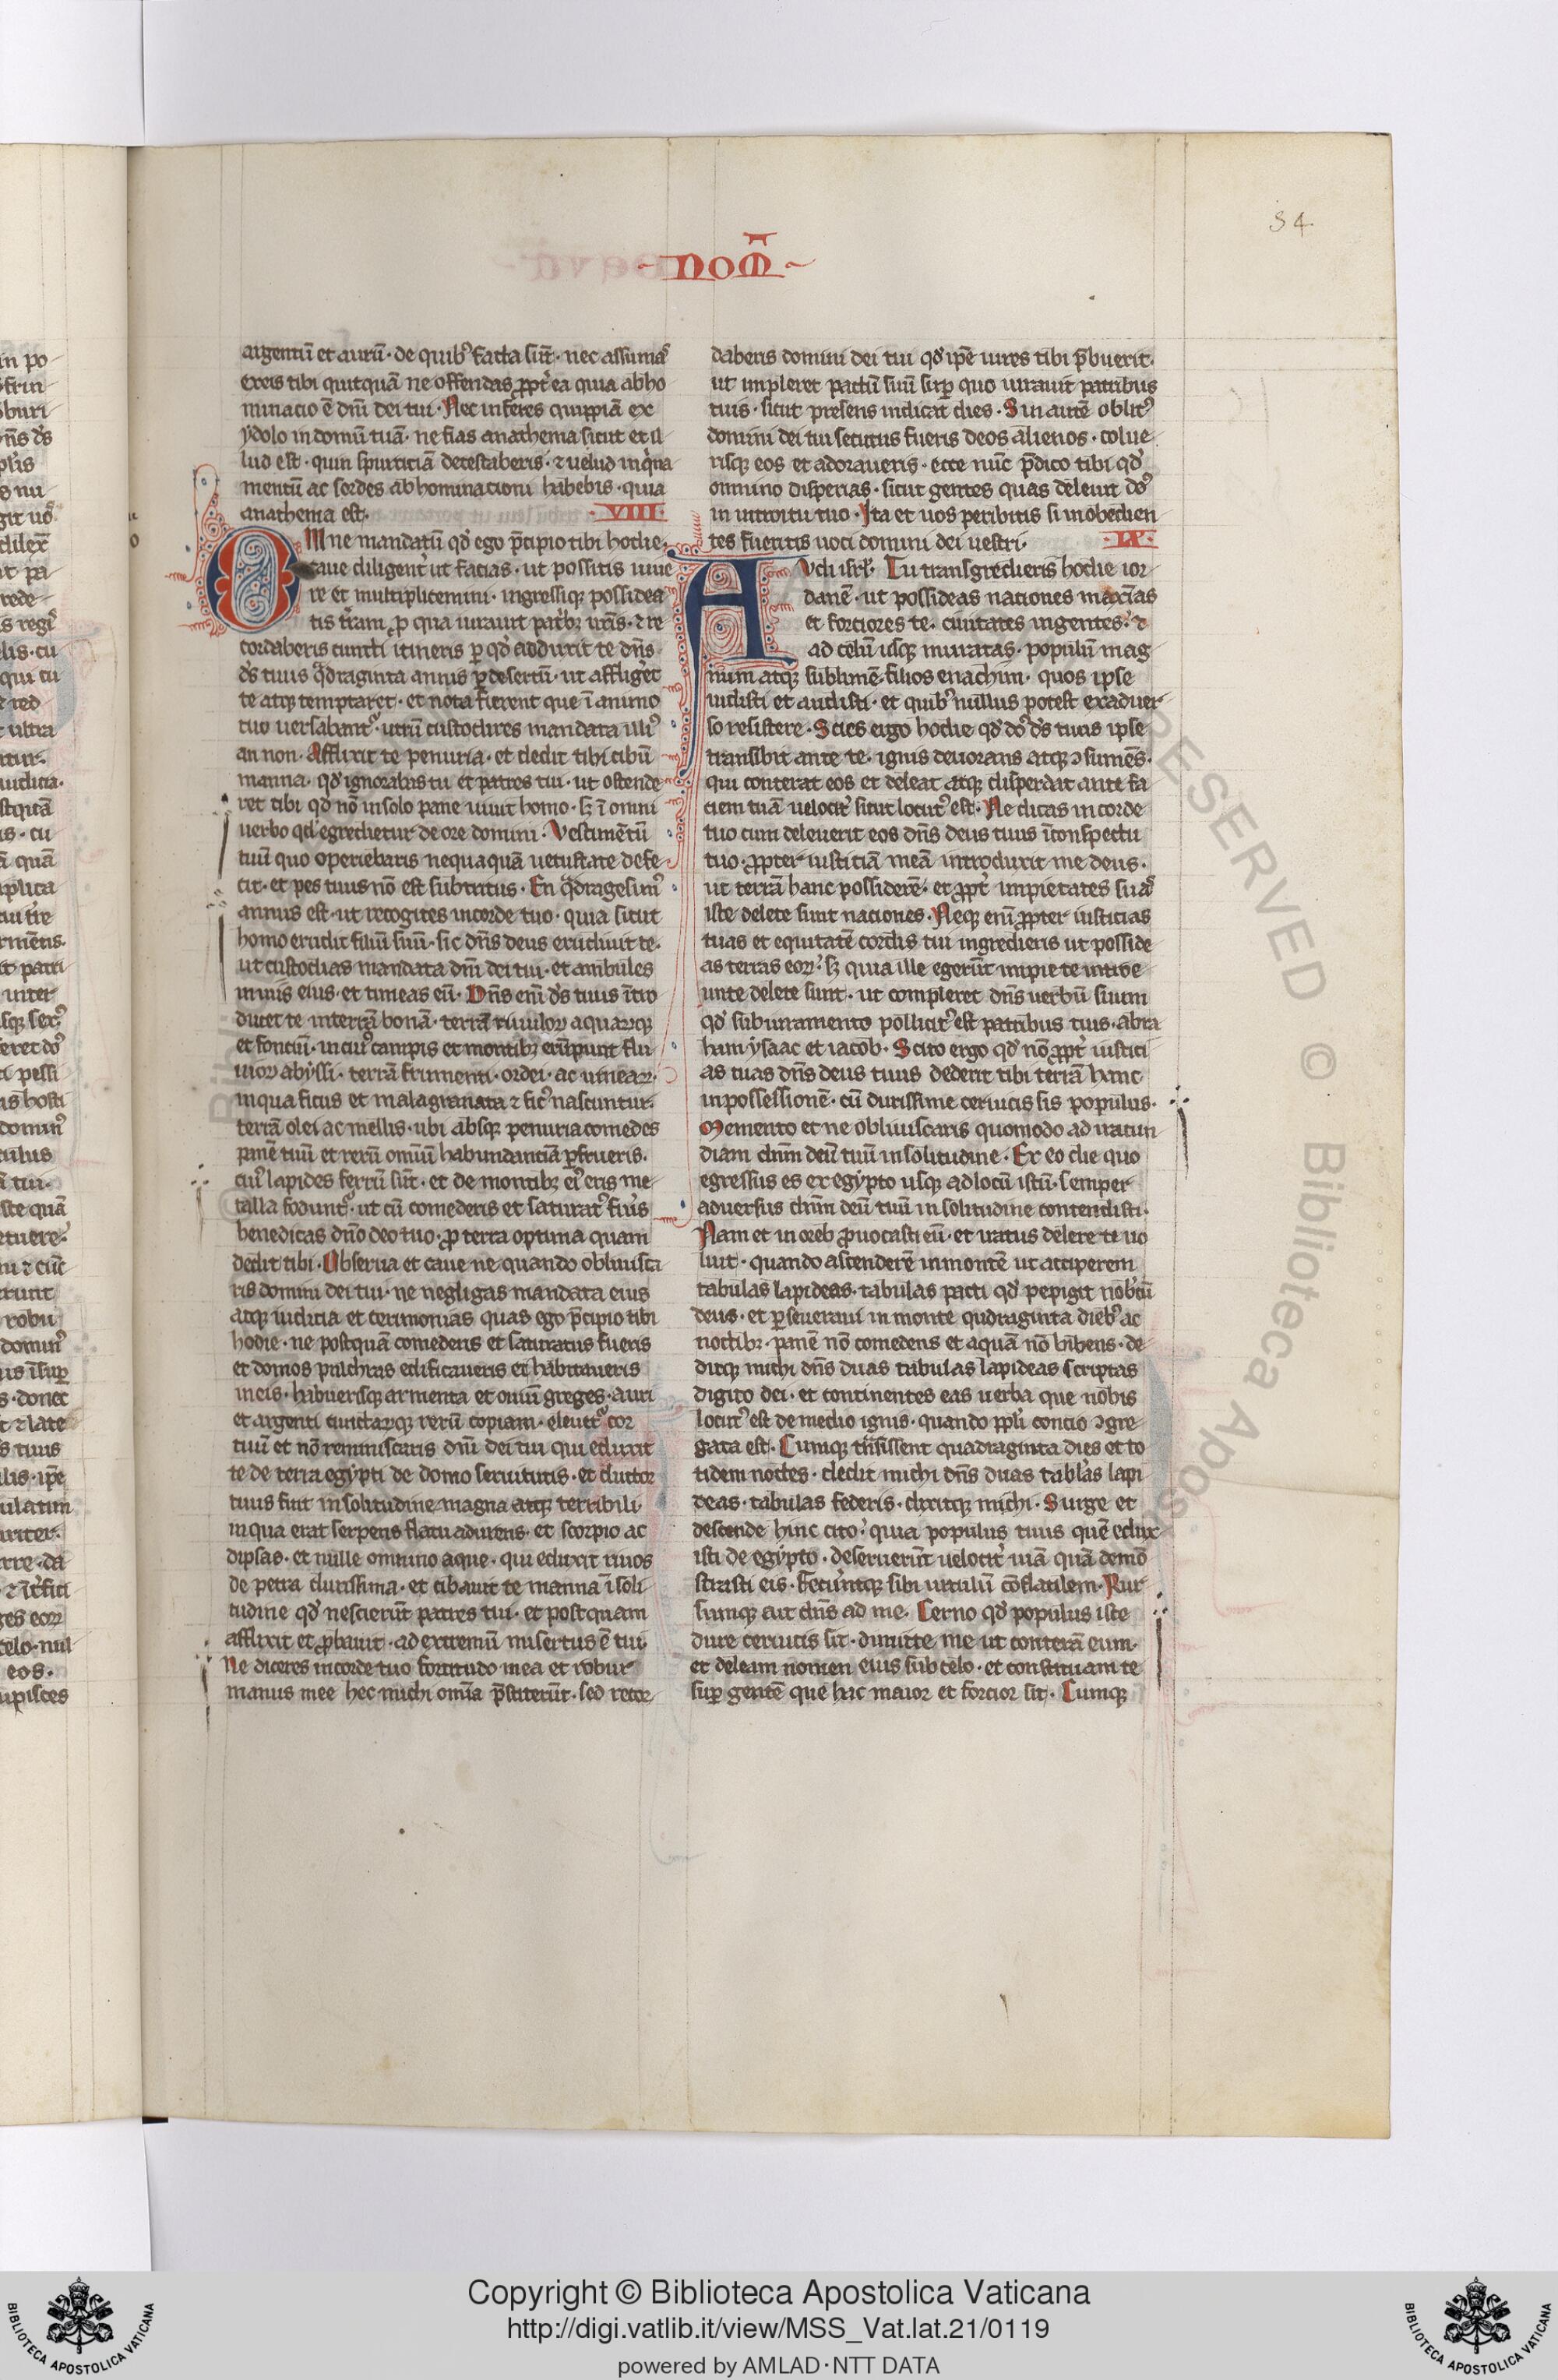 54
noM̄
argentū et aurū· de quibꝰ facta sūt· nec assumaˢ
ex eis tibi quitquā ne offendas ꝓpt̾ea quia abho
minacio ē dn̄i dei tui· Nec inferes quippiā ex
ydolo in domū tuā· ne fias anathema sicut et il
lud est· quin spurcitiā detestaberis· ⁊ uelud inqͥna
mentū ac sordes abhominacioni habebis· quia
anathema est·
VIII·
OMne mandatū qd̾ ego p̄cipio tibi hodie·
caue diligent̾ ut facias· ut possitis uiue
re et multiplicemini· ingressiqꝫ possidea
tis t̾ram ꝓ qua iurauit pat̾bꝫ ur̄is· ⁊ re
cordaberis cuncti itineris ꝑ qd̾ adduxit te dn̄s
d̾s tuus qͣdraginta annis ꝑ desertū· ut affliget̾
te atqꝫ temptaret· et nota fierent que ī animo
tuo uersabant̾· utrū custodires mandata illiꝰ
an non· Afflixit te penuria· et dedit tibi cibū
manna· qd̾ ignorabas tu et patres tui· ut ostende
ret tibi qd̾ nō in solo pane uiuit homo· sꝫ ī omni
uerbo qd̾ egredietur de ore domini· Vestimētū
tuū quo operiebaris nequaquā uetustate defe
cit· et pes tuus nō est subtritus· En qͣdragesimꝰ
annus est· ut recogites in corde tuo· quia sicut
homo erudit filiū suū· sic dn̄s deus erudiuit te·
ut custodias mandata dn̄i dei tui· et ambules
in uiis eius· et timeas eū· Dn̄s eni d̾s tuus ītro
ducet te in terrā bonā· terrā riuuloꝝ aquarūqꝫ
et fonciū· in cuiꝰ campis et montibꝫ erūpunt flu
uioꝝ abyssi· terrā frumenti· ordei· ac uineaꝝ·
in qua ficus et malagranata ⁊ ficꝰ nascuntur·
terrā olei ac mellis· ubi absqꝫ penuria comedes
panē tuū et rerū omīū habundantiā ꝑfrueris·
cuiꝰ lapides ferrū sūt· et de montibꝫ eiꝰ eris me
talla fodunt̾· ut cū comederis et saturatꝰ fuīs
benedicas dn̄o deo tuo· ꝓ terra optima quam
dedit tibi· Obserua et caue ne quando obliuisca
ris domini dei tui· ne negligas mandata eius
atqꝫ iudicia et cerimonias quas ego p̄cipio tibi
hodie· ne postquā comederis et saturatus fueris
et domos pulchras edificaueris et habitaueris
in eis· habuerisqꝫ armenta et ouiū greges· auri
et argenti cunctarūqꝫ rerū copiam· eleuet̾ cor
tuū et nō reminiscaris dn̄i dei tui qui eduxit
te de terra egypti de domo seruitutis· et ductor
tuus fuit in solitudine magna atqꝫ terribili·
in qua erat serpens flatu adurens· et scorpio ac
dipsas· et nulle omnino aque· qui eduxit riuos
de petra durissima· et cibauit te manna ī soli
tudine qd̾ nescierūt patres tui· et postquam
afflixit et ꝓbauit· ad extremū misertus ē tui·
Ne diceres in corde tuo fortitudo mea et robur
manus mee hec michi om̄ia p̄stiterūt· sed recor
daberis domini dei tui qd̾ ip̄e uires tibi p̄buerit·
ut impleret pactū suū suꝑ quo iurauit patribus
tuis· sicut presens indicat dies· Sin autē oblitꝰ
domini dei tui secutus fueris deos alienos· colue
risqꝫ eos et adoraueris· ecce nūc p̄dico tibi qd̾
omnino disperias· sicut gentes quas deleuit do̾
in introitu tuo· Ita et uos peribitis si inobedien
tes fueritis uoci domini dei uestri·
IX·
AVdi isrl̄· Tu transgredieris hodie ior
danē· ut possideas naciones max̄ias
et forciores te· ciuitates ingentes· ⁊
ad celū usqꝫ muratas· populū mag
num atqꝫ sublimē· filios enachim· quos ipse
uidisti et audisti· et quibꝰ nullus potest ex aduer
so resistere· Scies ergo hodie qd̾ do̾ d̾s tuus ipse
transibit ante te· ignis deuorans atqꝫ ɔsumēs·
qui conterat eos et deleat atqꝫ disperdat ante fa
ciem tuā uelocit̾ sicut locutꝰ est· Ne dicas in corde
tuo cum deleuerit eos dn̄s deus tuus ī conspectu
tuo· ꝓpter iusticiā meā introduxit me deus·
ut terrā hanc possiderē· et ꝓpt̾ impietates suaˢ
iste delete sunt naciones· Neqꝫ eni ꝓpter iusticias
tuas et equitatē cordis tui ingredieris ut posside
as terras eoꝝ· sꝫ quia ille egerūt impie te introe
unte delete sunt· ut compleret dn̄s uerbū suum
qd̾ sub iuramento pollicitꝰ est patribus tuis· abra
ham ysaac et iacob· Scito ergo qd̾ nō ꝓpt̾ iustici
as tuas dn̄s deus tuus dederit tibi terrā hanc
in possessionē· cū durissime ceruicis sis populus·
Memento et ne obliuiscaris quomodo ad iracun
diam dn̄m deū tuū in solitudine· Ex eo die quo
egressus es ex egypto usqꝫ ad locū istū· semper
aduersus dn̄m deū tuū in solitudine contendisti·
Nam et in oreb ꝓuocasti eū· et iratus delere te uo
luit· quando ascenderē in montē ut acciperem
tabulas lapideas· tabulas pacti qd̾ pepigit nobcū
deus· et ꝑseueraui in monte qudraginta diebꝰ ac
noctibꝫ· panē nō comedens et aquā nō bibens· de
ditqꝫ michi dn̄s duas tabulas lapideas scriptas
digito dei· et continentes eas uerba que nobis
locutꝰ est de medio ignis· quando ppl̄i concio ɔgre
gata est· Cumqꝫ tn̄sissent quadraginta dies et to
tidem noctes· dedit michi dn̄s duas tablas lapi
deas· tabulas federis· dixitqꝫ michi· Surge et
descende hinc cito· quia populus tuus quē edux
isti de egypto· deseruerūt uelocit̾ uiā quā demō
strasti eis· Feceruntqꝫ sibi uitulū cōflatilem· Rur
sumqꝫ ait dn̄s ad me· Cerno qd̾ populus iste
dure ceruicis sit· dimitte me ut conterā eum·
et deleam nomen eius sub celo· et constituam te
suꝑ gentē que hac maior et forcior sit· Cumqꝫ
Copyright © Biblioteca Apostolica Vaticana
http://digi.vatlib.it/view/MSS_Vat.lat.21/0119
powered by AMLAD·NTT DATA
BIBLIOTECA APOSTOLICA VATICANA
BIBLIOTECA APOSTOLICA VATICANA